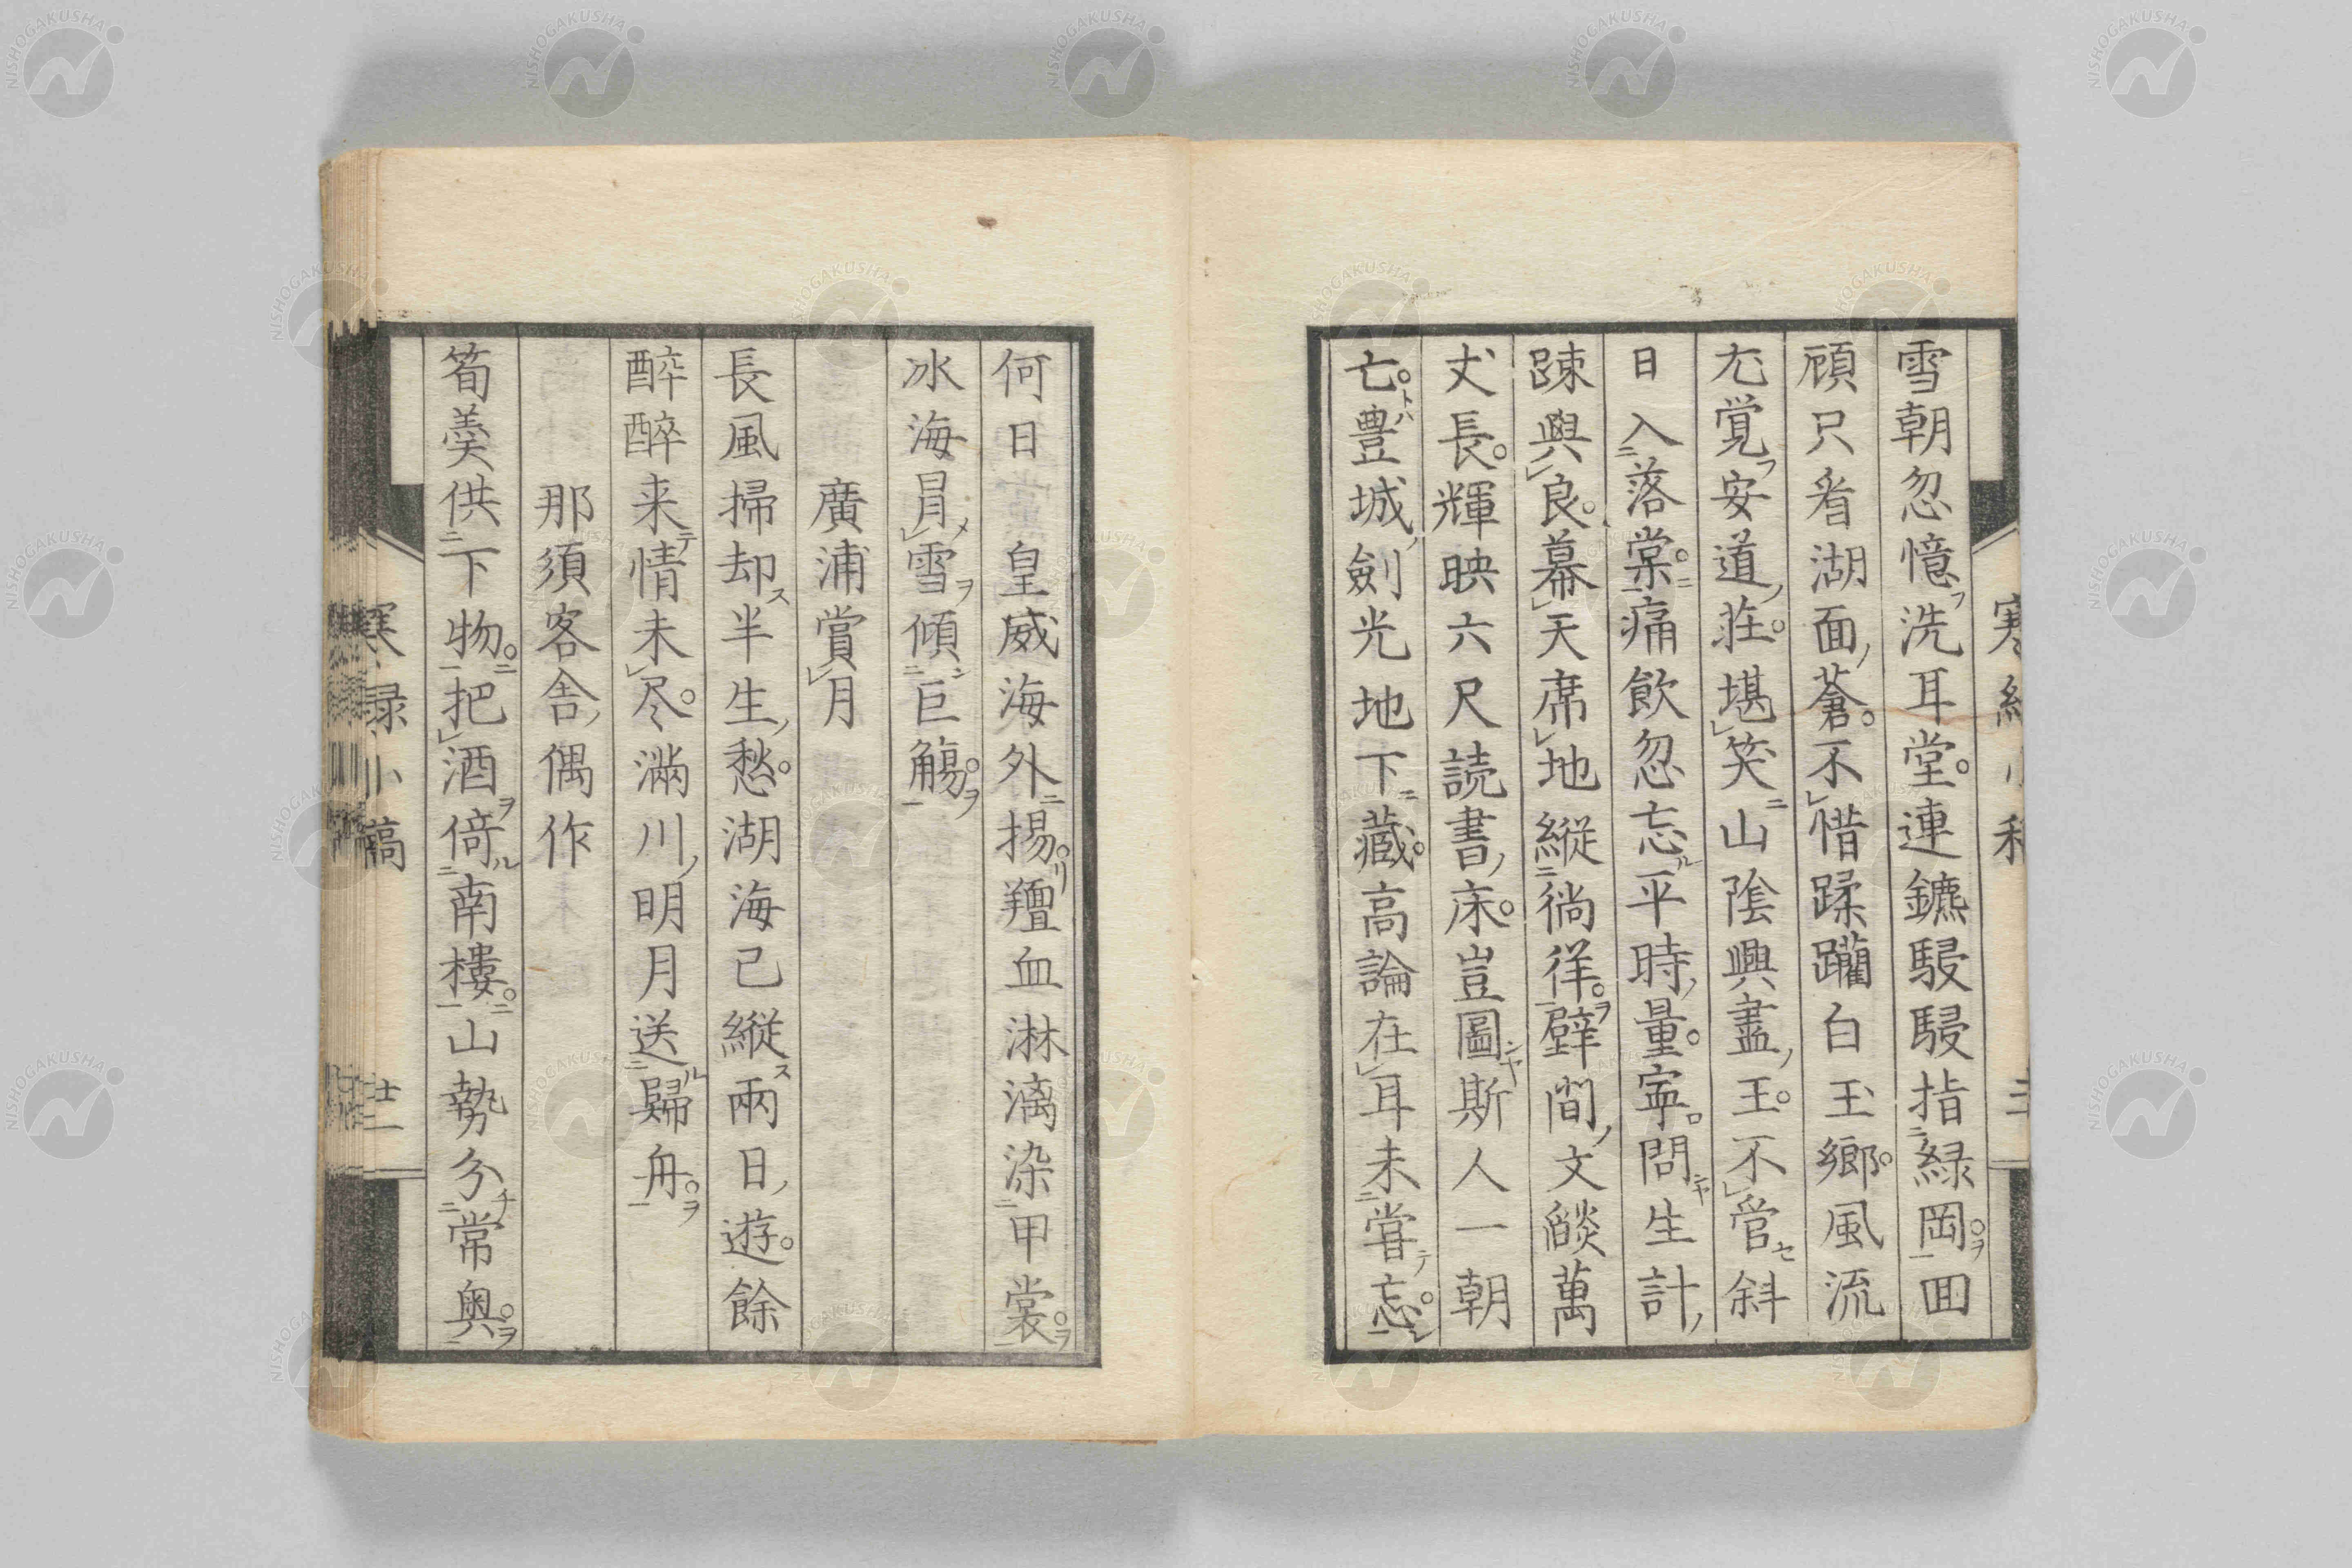 雪朝忽憶洗耳堂。連鑣駸駸指緑岡。囬
頋只看湖面蒼。不惜蹂躪白玉鄉。風流
尤覚安道荘。堪笑山陰興盡王。不管斜
日入落棠。痛飲忽忘平時量。寧問生計
踈與良。幕天席地縦徜徉。壁間文燄萬
丈長。輝映六尺読書床。豈圖斯人一朝
亡。豊城劍光地下藏。高論在耳未嘗忘。
何日　皇威海外揚。羶血淋漓染甲裳。
冰海冐雪傾巨觴。
廣浦賞月
長風掃却半生愁。湖海己縦兩日遊。餘
醉醉来情未尽。滿川明月送歸舟。
那須客舎偶作
筍羮供下物。把酒倚南樓。山勢分常奥。
寒緑小稿
NISHOGAKUSHA